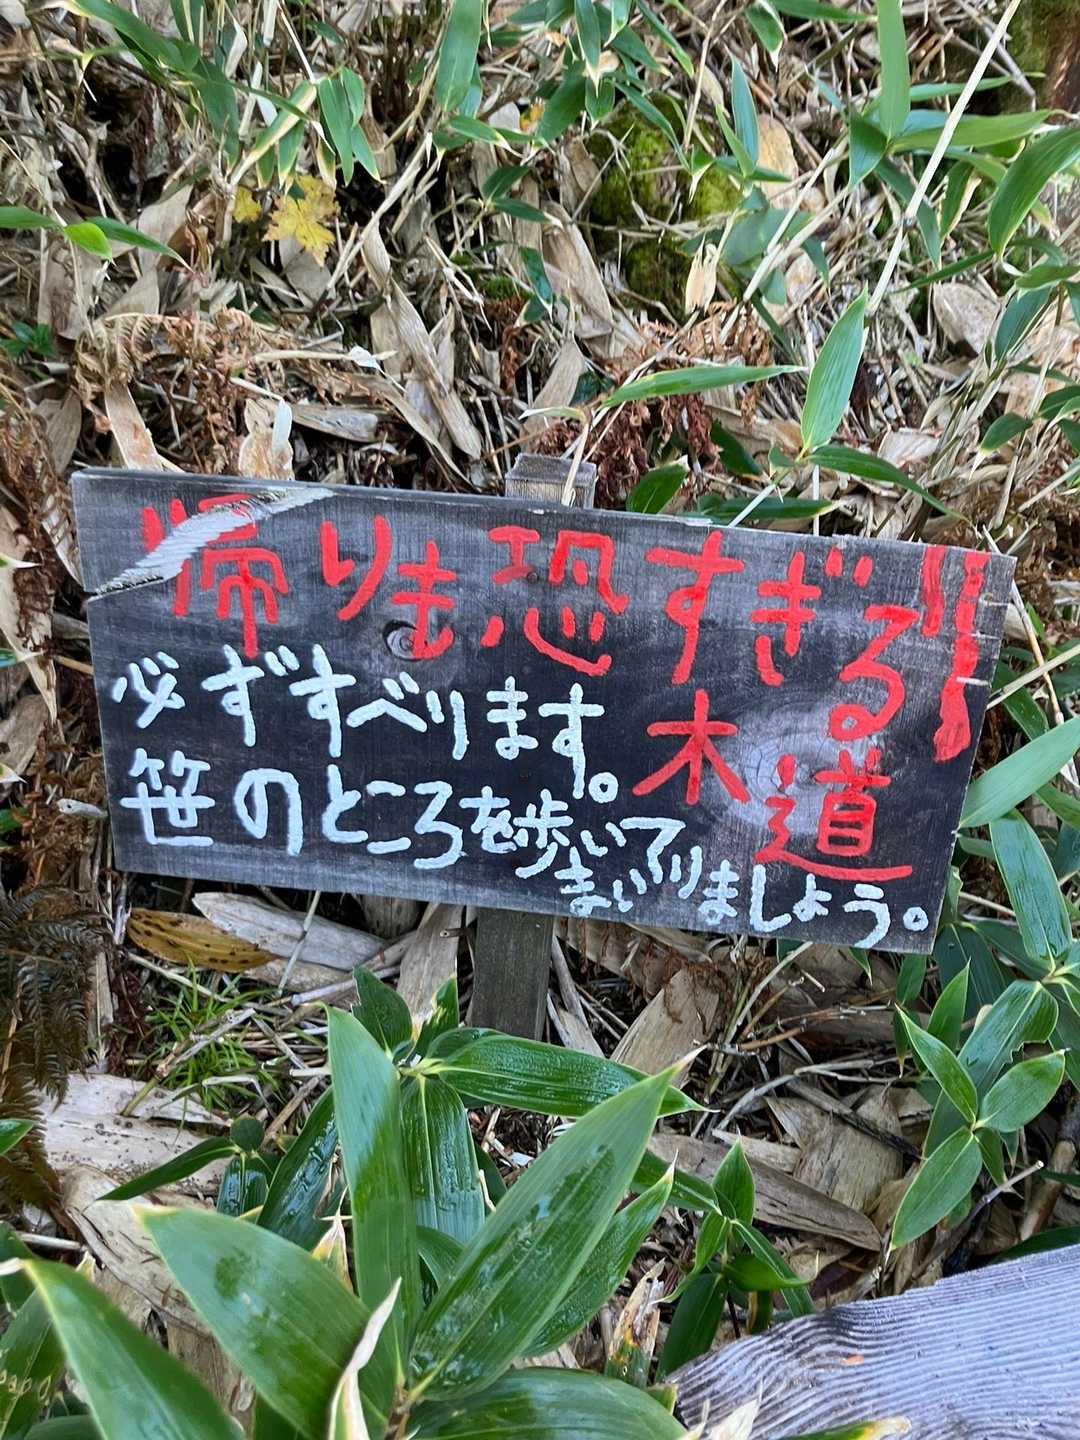 帰りも恐すぎる!!
木道
必ずすべります。
笹のところを歩いて
まいりましょう。